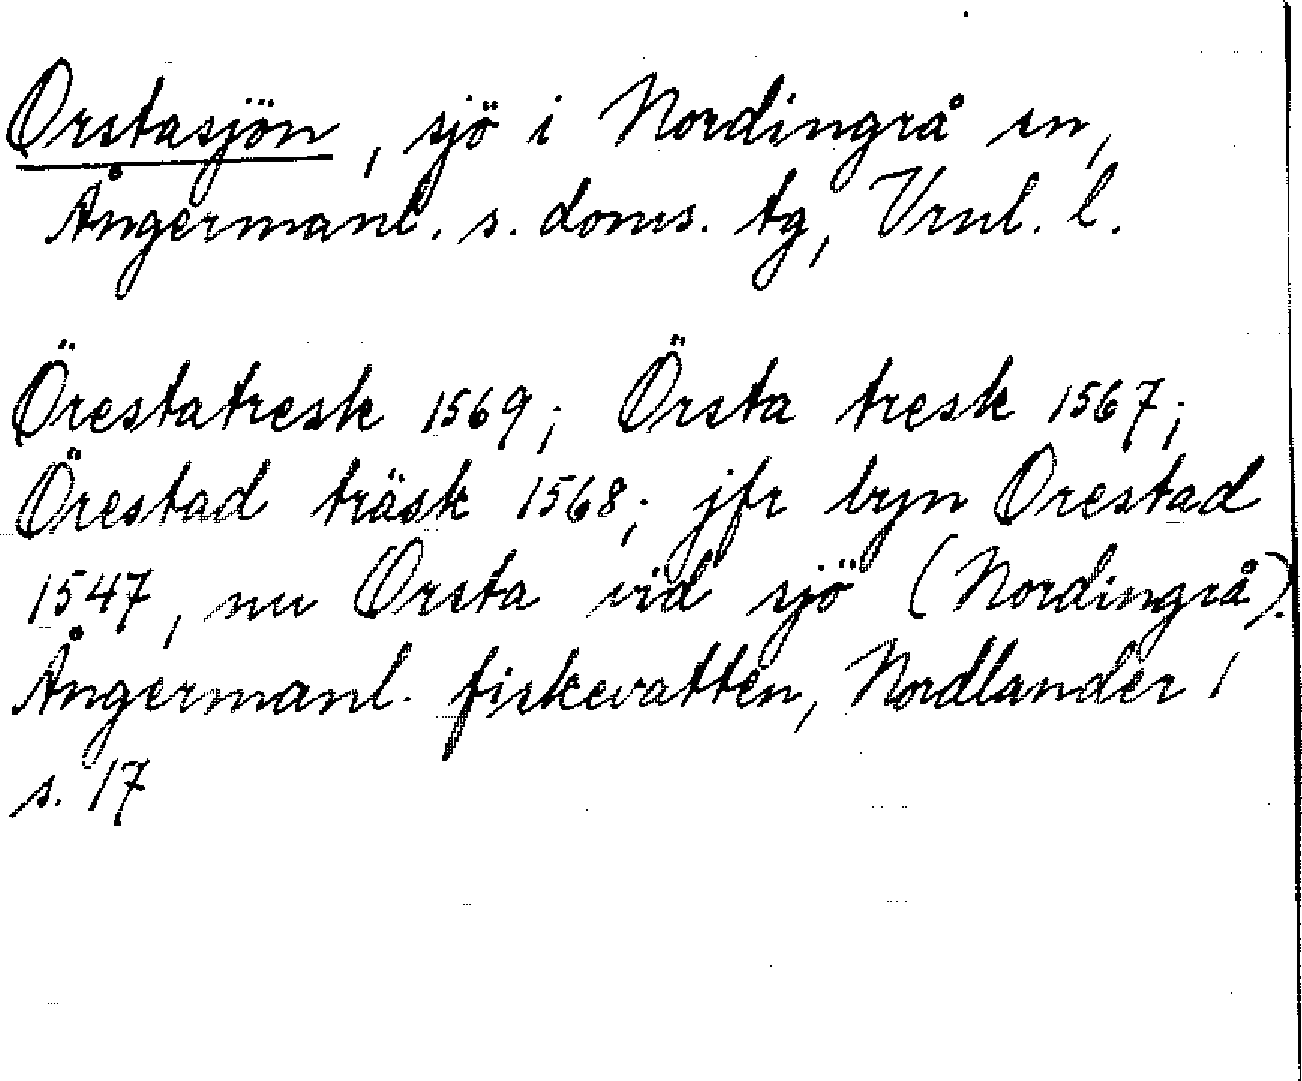 Orstasjön, sjö i Nordingrå sn,
Ångermanl. s. doms. tg, Vrnl. l.
Örestatresk 1569; Örsta tresk 1567;
Örestad träsk 1568; jfr byn Orestad
1547, nu Orsta vid sjö (Nordingrå).
Ångermanl. fiskevatten, Nordlander 1
s. 17